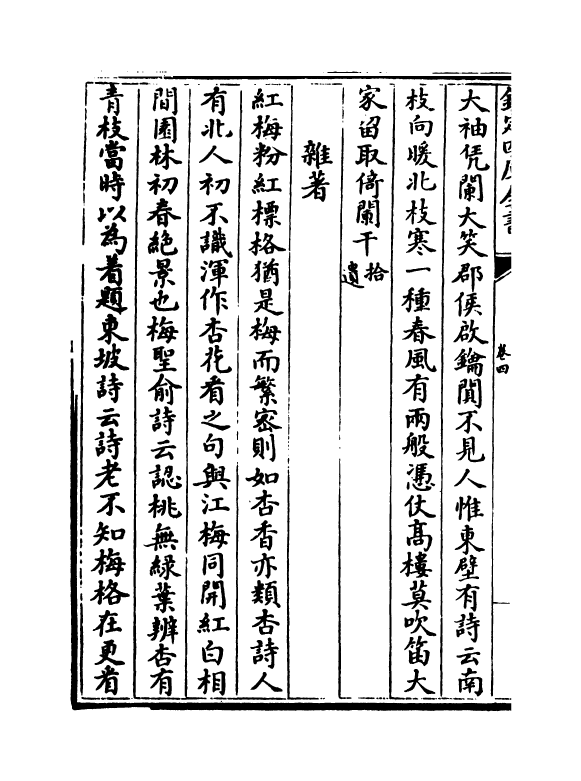 欽定四庫全書
卷四
大袖凭闌大笑郡侯啟鑰閴不見人惟東壁有詩云南
枝向暖北枝寒一種春風有兩般憑仗髙樓莫吹笛大
家留取倚闌干拾遺
雜著
紅梅粉紅標格猶是梅而繁宻則如杏香亦類杏詩人
有北人初不識渾作杏花看之句與江梅同開紅白相
間園林初春絶景也梅聖俞詩云認桃無緑葉辨杏有
青枝當時以為着題東坡詩云詩老不知梅格在更看